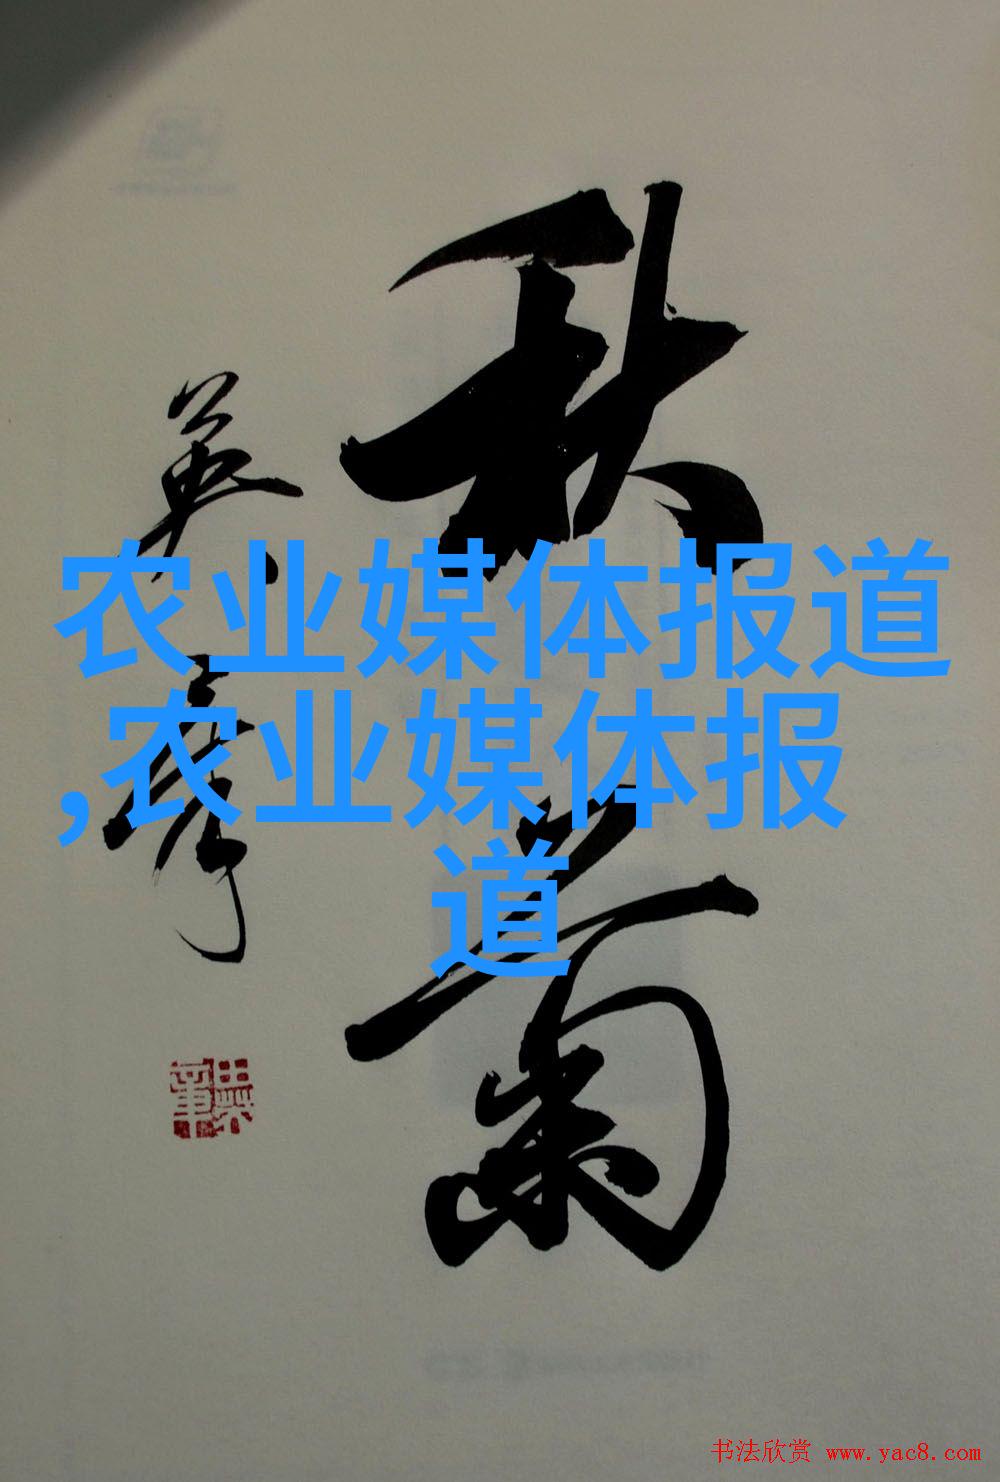 秋菊
农业媒体报道
,农业媒体报
道
书法欣赏 www.yac8.com